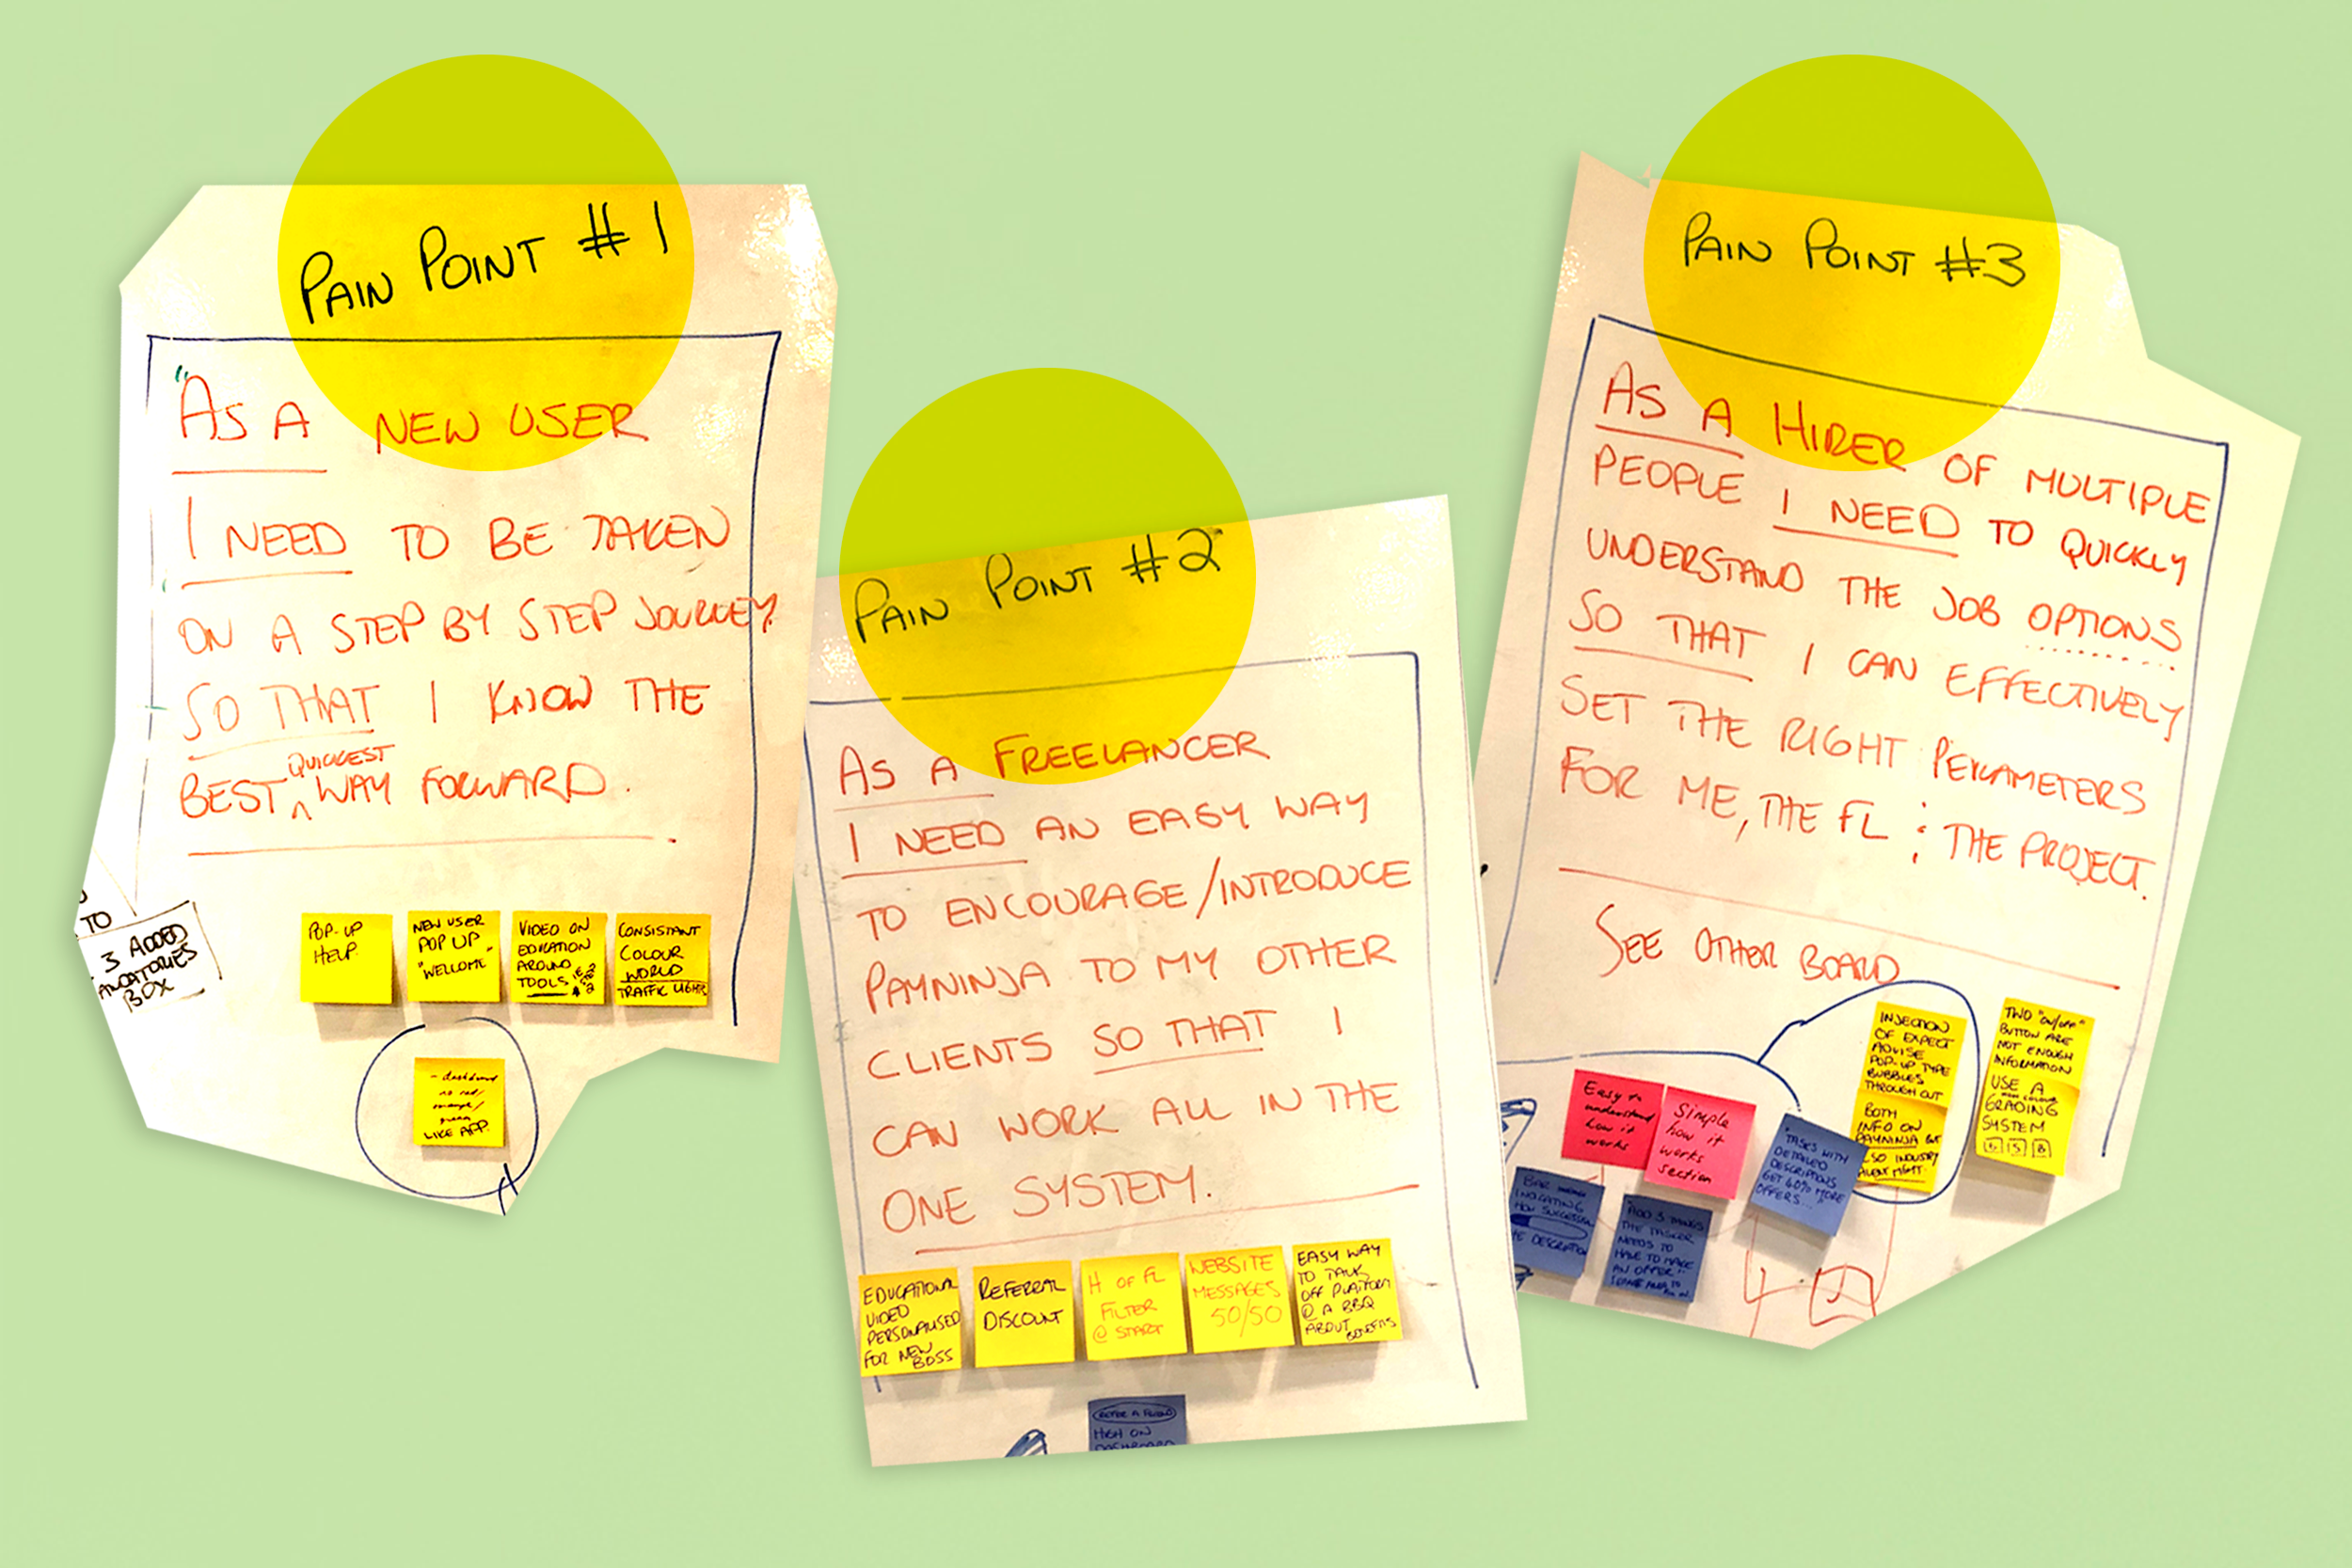 PAIN POINT #1
"AS A NEW USER
I NEED TO BE TAKEN
ON A STEP BY STEP JOURNEY
SO THAT I KNOW THE
QUICKEST
BEST ^ WAY FORWARD.
TO
3 ADDED
BOX
POP-UP
HELP
NEW USER
POP UP
"WELCOME"
VIDEO ON
EDUCATION
AROUND
TOOLS
CONSISTANT
COLOUR
WORLD
TRAFFIC LIGHTS
- dashboard
no red/
orange/
green
LIKE APP.
PAIN POINT #2
AS A FREELANCER
I NEED AN EASY WAY
TO ENCOURAGE/INTRODUCE
PAYNINJA TO MY OTHER
CLIENTS SO THAT I
CAN WORK ALL IN THE
ONE SYSTEM.
EDUCATIONAL
VIDEO
PERSONALISED
FOR NEW
BOSS
REFERRAL
DISCOUNT
H OF FL
FILTER
@ START
WEBSITE
MESSAGES
50/50
EASY WAY
TO TALK
OFF PLATFORM
@ A BBQ
ABOUT BENEFITS
REFER A FRIEND
HIGH ON
DASHBOARD
PAIN POINT #3
AS A HIRER OF MULTIPLE
PEOPLE I NEED TO QUICKLY
UNDERSTAND THE JOB OPTIONS
SO THAT I CAN EFFECTIVELY
SET THE RIGHT PERAMETERS
FOR ME, THE FL & THE PROJECT.
SEE OTHER BOARD
INJECTION
OF EXPECT
ADVISE
POP-UP TYPE
BUBBLES
THROUGH OUT
BOTH
INFO ON
PAYNINJA BUT
ALSO INDUSTRY
TWO "ON/OFF"
BUTTON ARE
NOT ENOUGH
INFORMATION
USE A
GRADING
SYSTEM
Easy to
understand
how it
works
Simple
how it
works
section
"TASKS WITH
DETAILED
DESCRIPTIONS
GET 60% MORE
OFFERS...
BAR
INDICATING
HOW SUCCESSFUL
DESCRIPTION
ADD 3 THINGS
THE TASKER
NEEDS TO
HAVE TO MAKE
AN OFFER"